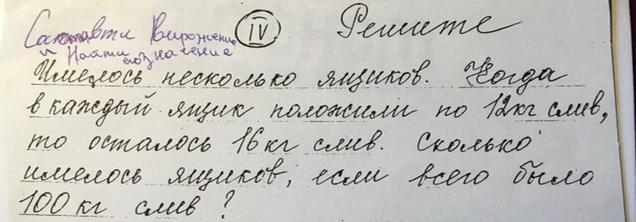 Составти Выражение (IV) Решите
и Найти его значение
Имелось несколько ящиков. Когда
в каждый ящик положили по 12кг слив,
то осталось 16кг слив. Сколько
имелось ящиков, если всего было
100кг слив?